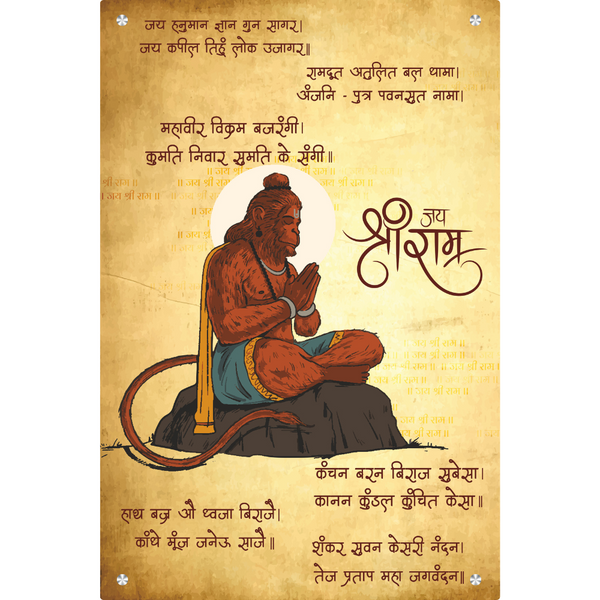 जय हनुमान ज्ञान गुन सागर।
जय कपील तिहुं लोक उजागर॥
रामदूत अतुलित बल धामा।
अंजनि - पुत्र पवनसुत नामा।
महावीर विक्रम बजरंगी।
कुमति निवार सुमति के संगी॥
॥ जय श्री राम ॥
जय श्री राम
कंचन बरन बिराज सुबेसा।
कानन कुंडल कुंचित केसा॥
हाथ बज्र औ ध्वजा बिराजै।
काँधे मूंज जनेऊ साजै॥
शंकर सुवन केसरी नंदन।
तेज प्रताप महा जगवंदन॥